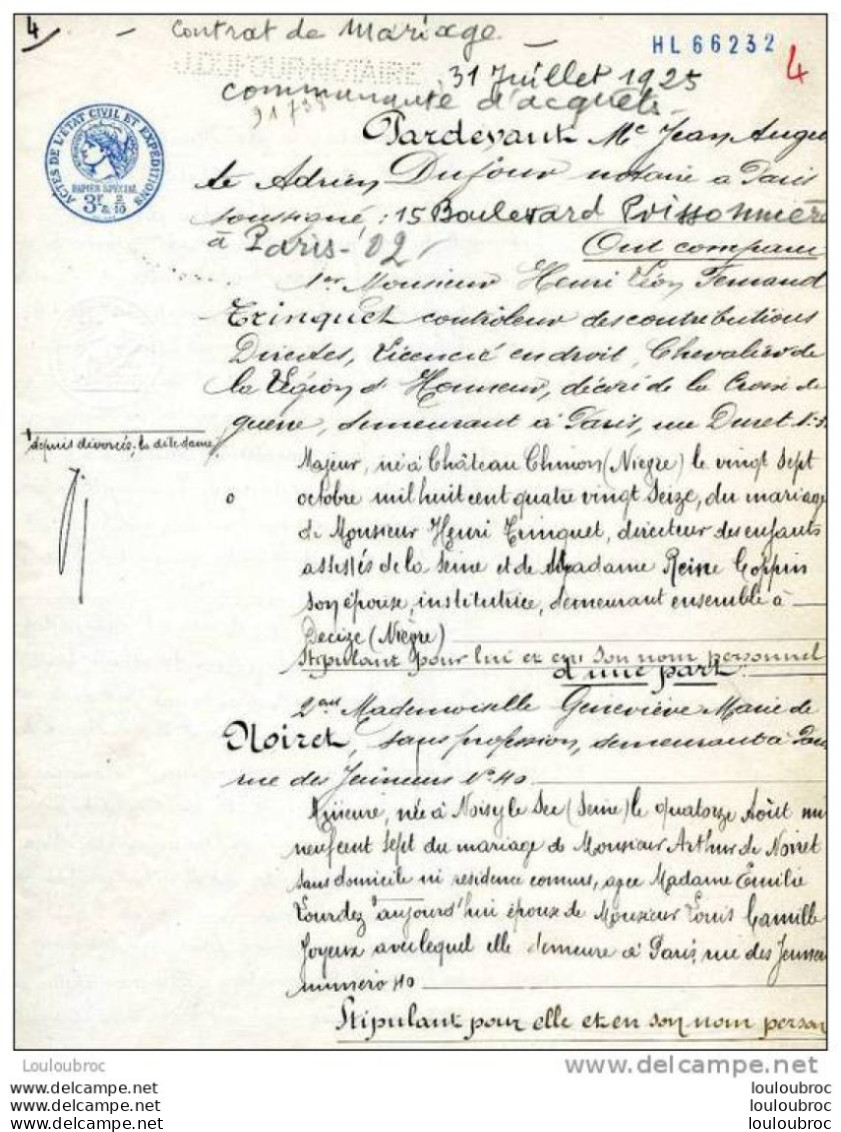 4
- Contrat de Mariage -
HL 66232
4
J. DUFOUR NOTAIRE
31 Juillet 1925
communauté d'acquêts
ACTES DE L'ÉTAT CIVIL ET EXPÉDITIONS
PAPIER SPÉCIAL
3F 2/10
Pardevant Me Jean Augus
te Adrien Dufour notaire à Paris
soussigné : 15 Boulevard Poissonnière
à Paris - 02
Ont comparu
1ent Monsieur Henri Léon Fernand
Trinquet contrôleur des contributions
Directes, Licencié en droit, Chevalier de
la Légion d'Honneur, décoré de la Croix de
guerre, demeurant à Paris, rue Duret N° 3.
depuis divorcée, la dite dame
Majeur, né à Château Chinon (Nièvre) le vingt sept
octobre mil huit cent quatre vingt seize, du mariage
de Monsieur Henri Trinquet, directeur des enfants
assistés de la Seine et de Madame Reine Coppin
son épouse, institutrice, demeurant ensemble à
Decize (Nièvre)
Stipulant pour lui et en son nom personnel
d'une part.
2ent Mademoiselle Geneviève Marie de
Noiret, sans profession, demeurant à Paris
rue des Jeûneurs N° 40
Mineure, née à Noisy le Sec (Seine) le quatorze Août mil
neuf cent sept du mariage de Monsieur Arthur de Noiret
sans domicile ni résidence connus, avec Madame Emilie
Lourdez aujourd'hui épouse de Monsieur Louis Camille
Joyeux avec lequel elle demeure à Paris, rue des Jeuneu
numéro 40
Stipulant pour elle et en son nom person
Louloubroc
www.delcampe.net
louloubroc louloubroc
louloubroc louloubroc
louloubroc louloubroc